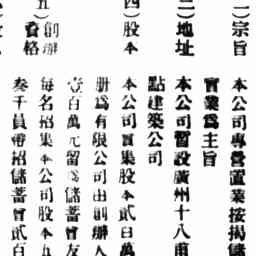 一）宗旨
本公司專營置業按揭儲
實業爲主旨
二）地址
本公司暫設廣州十八甫
點建築公司
四）股本
本公司實集股本貳百萬
册爲有限公司由創辦人
壹百萬元留爲儲蓄會友
五）創辦
資格
每名招集本公司股本五
叁千員帶招儲蓄會貳百